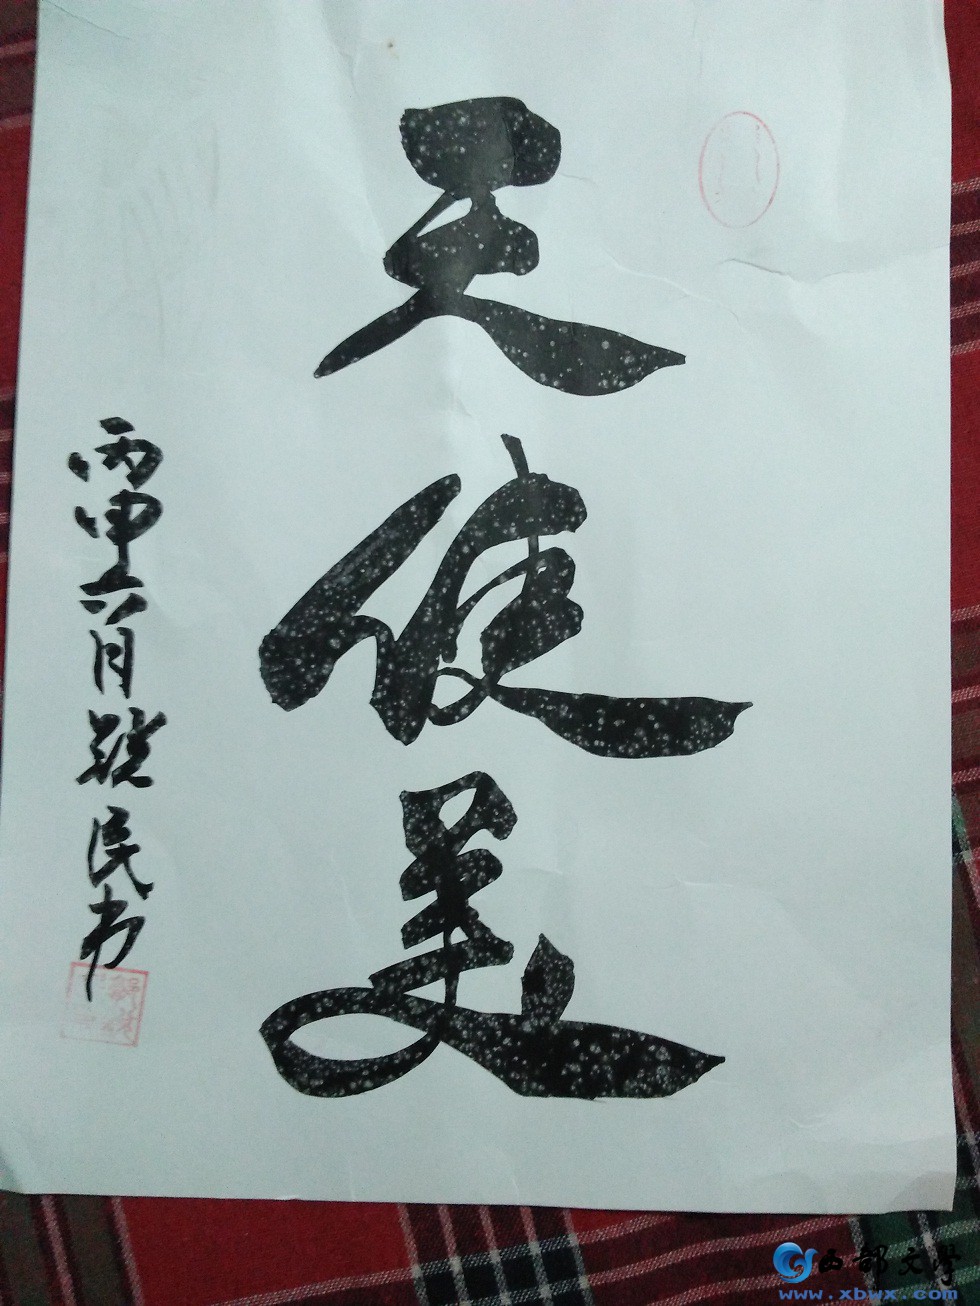 天使美
丙申六月镜民书
西部文学
www.xbwx.com